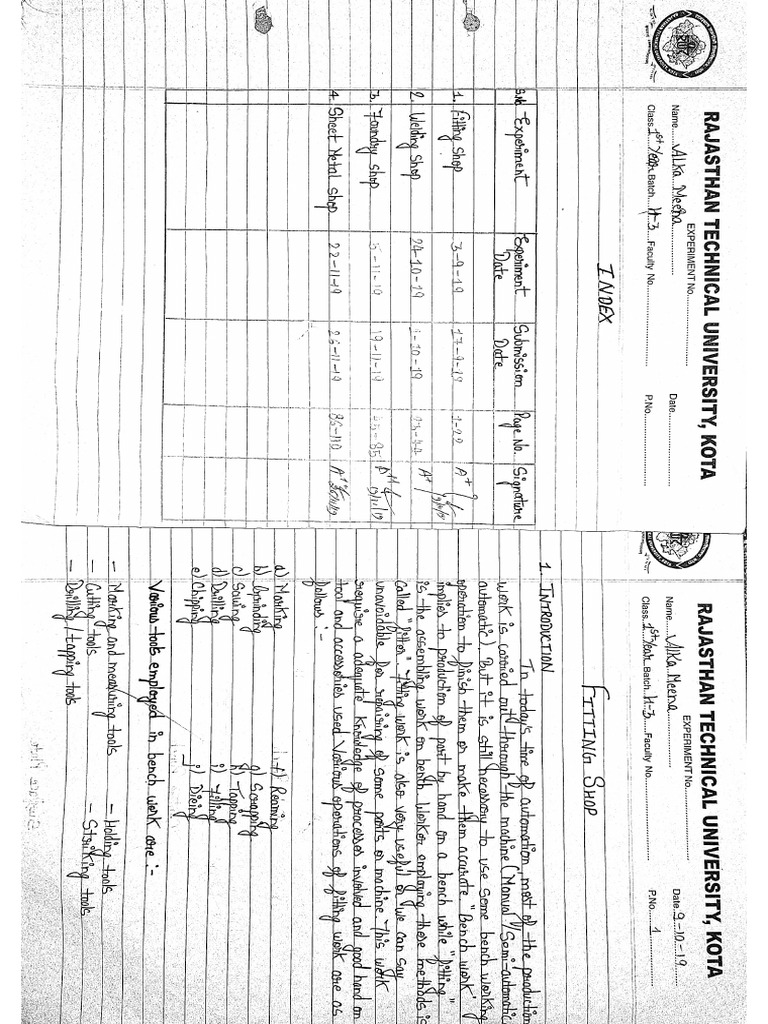 RAJASTHAN TECHNICAL UNIVERSITY, KOTA
EXPERIMENT No. Date
Name Alka Meena
Class 1st Year Batch H-3 Faculty No. P.No.
INDEX
S.No. Experiment Experiment Date Submission Date Page No. Signature
1. Fitting Shop 3-9-19 17-9-19 1-22 A+
2. Welding Shop 24-10-19 1-10-19 A+
3. Foundry Shop 5-11-19 19-11-19 19/11/19
4. Sheet Metal Shop 22-11-19 26-11-19 86-110
RAJASTHAN TECHNICAL UNIVERSITY, KOTA
EXPERIMENT No. Date 9-10-19
Name Alka Meena
Class 1st Year Batch H-3 Faculty No. P.No. 1
FITTING SHOP
1. INTRODUCTION
In today's time of automation, most of the production
work is carried out through the machine (Manual / Semi-automatic
automatic). But it is still necessary to use some bench working
operation to finish them or make them accurate "Bench work"
implies to production of part by hand on a bench while "fitting"
is the assembling work on bench. Worker employing these methods is
called "fitter". fitting work is also very useful or we can say
unavoidable for repairing of some parts or machine. This work
require a adequate knowledge of processes involved and good hand on
tool and accessories used Various operations of fitting work are as
follows :-
a) Marking f) Reaming
b) Grinding g) Scrapping
c) Sawing h) Tapping
d) Drilling i) Filling
e) Chipping j) Dieing
Various tools employed in bench work are :-
- Marking and measuring tools - Holding tools
- Cutting tools - Striking tools
- Drilling / tapping tools